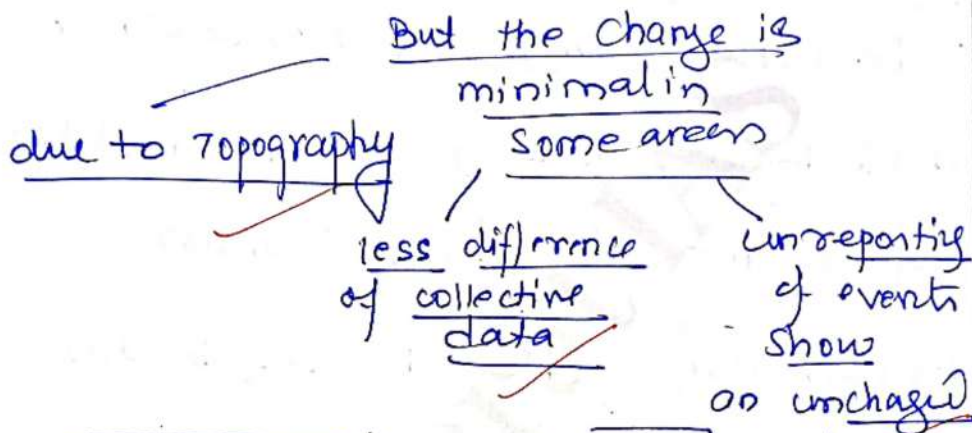 But the change is
minimal in
some areas
due to Topography
less difference
of collective
data
unreporting
of events
show
on unchaged